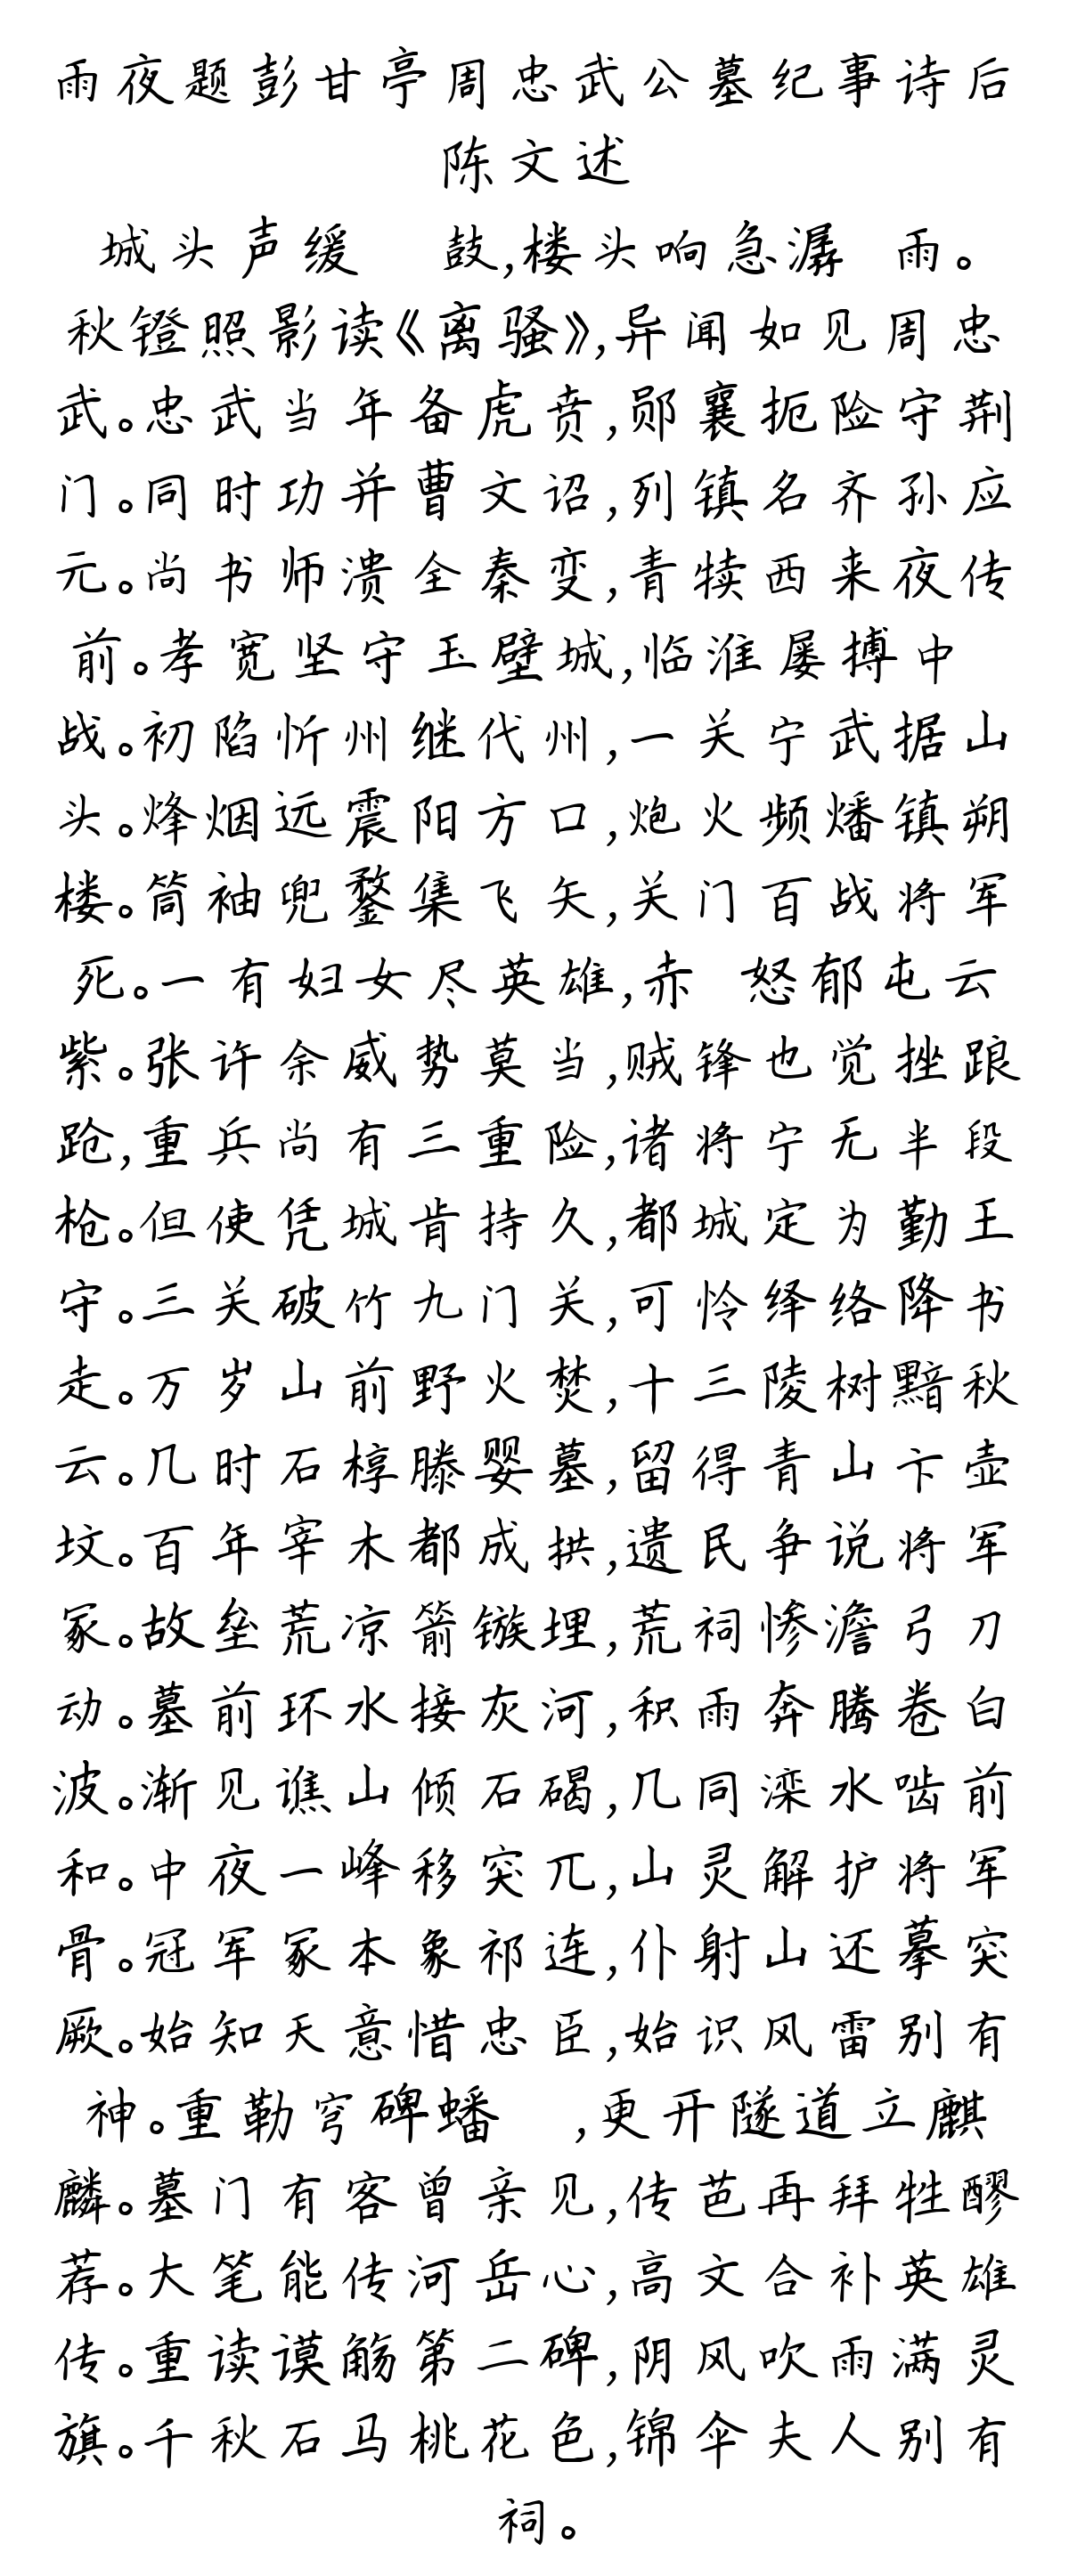 雨夜题彭甘亭周忠武公墓纪事诗后
陈文述
城头声缓 鼓,楼头响急潺 雨。
秋镫照影读《离骚》,异闻如见周忠
武。忠武当年备虎贲,郧襄扼险守荆
门。同时功并曹文诏,列镇名齐孙应
元。尚书师溃全秦变,青犊西来夜传
前。孝宽坚守玉壁城,临淮屡搏中
战。初陷忻州继代州,一关宁武据山
头。烽烟远震阳方口,炮火频燔镇朔
楼。筒袖兜鍪集飞矢,关门百战将军
死。一有妇女尽英雄,赤 怒郁屯云
紫。张许余威势莫当,贼锋也觉挫踉
跄,重兵尚有三重险,诸将宁无半段
枪。但使凭城肯持久,都城定为勤王
守。三关破竹九门关,可怜绎络降书
走。万岁山前野火焚,十三陵树黯秋
云。几时石椁滕婴墓,留得青山卞壶
坟。百年宰木都成拱,遗民争说将军
冢。故垒荒凉箭镞埋,荒祠惨澹弓刀
动。墓前环水接灰河,积雨奔腾卷白
波。渐见谯山倾石碣,几同滦水啮前
和。中夜一峰移突兀,山灵解护将军
骨。冠军冢本象祁连,仆射山还摹突
厥。始知天意惜忠臣,始识风雷别有
神。重勒穹碑蟠 ,更开隧道立麒
麟。墓门有客曾亲见,传芭再拜牲醪
荐。大笔能传河岳心,高文合补英雄
传。重读谟觞第二碑,阴风吹雨满灵
旗。千秋石马桃花色,锦伞夫人别有
祠。